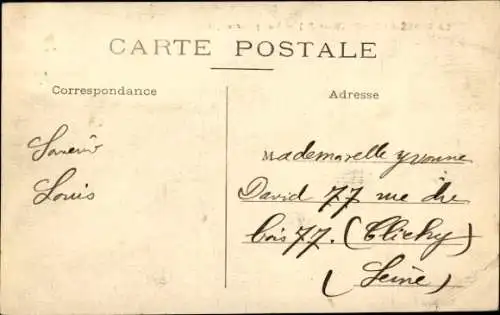 CARTE POSTALE
Correspondance
Adresse
Souvenir
Louis
Mademoiselle Yvonne
David 77 rue du
bois 77. (Clichy)
(Seine)